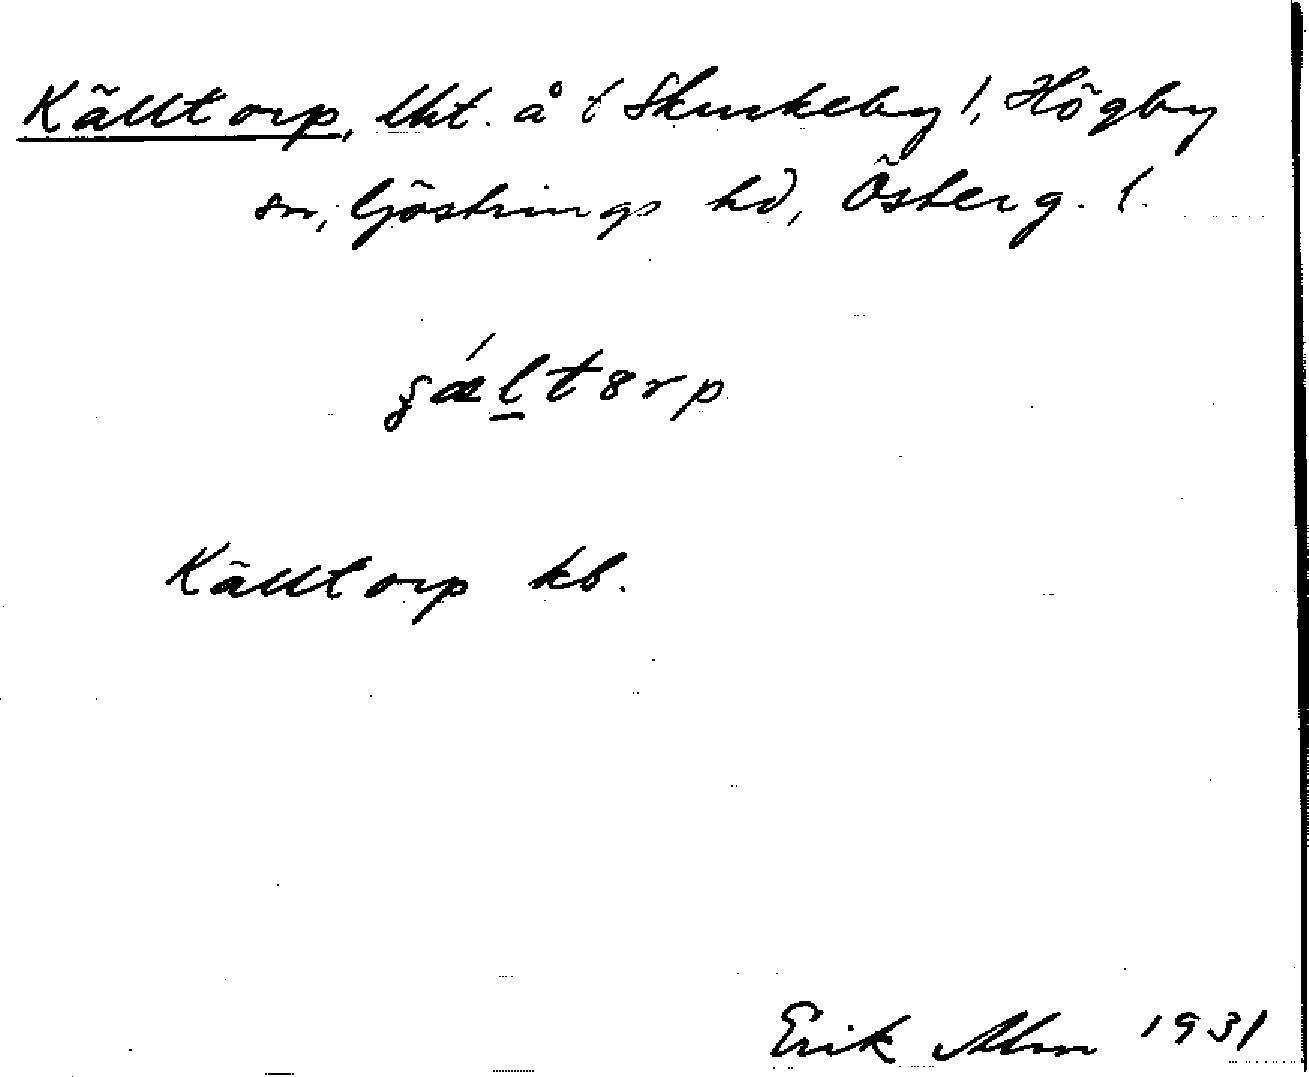 Källtorp, lht. å (Skurkeby), Högby
sn, Göstrings hd, Österg. l.
kb.
Källtorp kb.
Erik Alm 1931